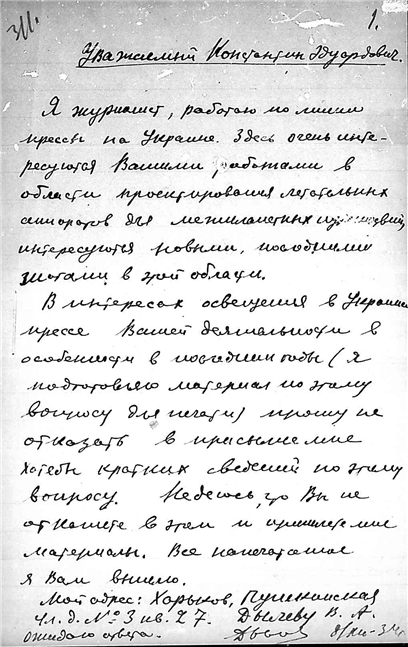 311.
1.
Уважаемый Константин Эдуардович.
Я журналист, работаю по линии
прессы на Украине. Здесь очень инте-
ресуются Вашими работами в
области проектирования летательных
аппаратов для межпланетных
интересуются новыми, последними
в этой области.
В интересах освещения в Украин
прессе Вашей деятельности в
особенности в последнии годы (я
подготовляю материал по этому
вопросу для печати) прошу не
отказать в присылке мне
хотебы кратких сведений по этому
вопросу. Надеюсь, что Вы не
откажете в этом и пришлете мне
материалы. Все напечатаное
я Вам вышлю.
Мой адрес: Харьков, Пушкинская
д. № 3 кв. 27. Дычеву В. А.
ожидаю ответа.